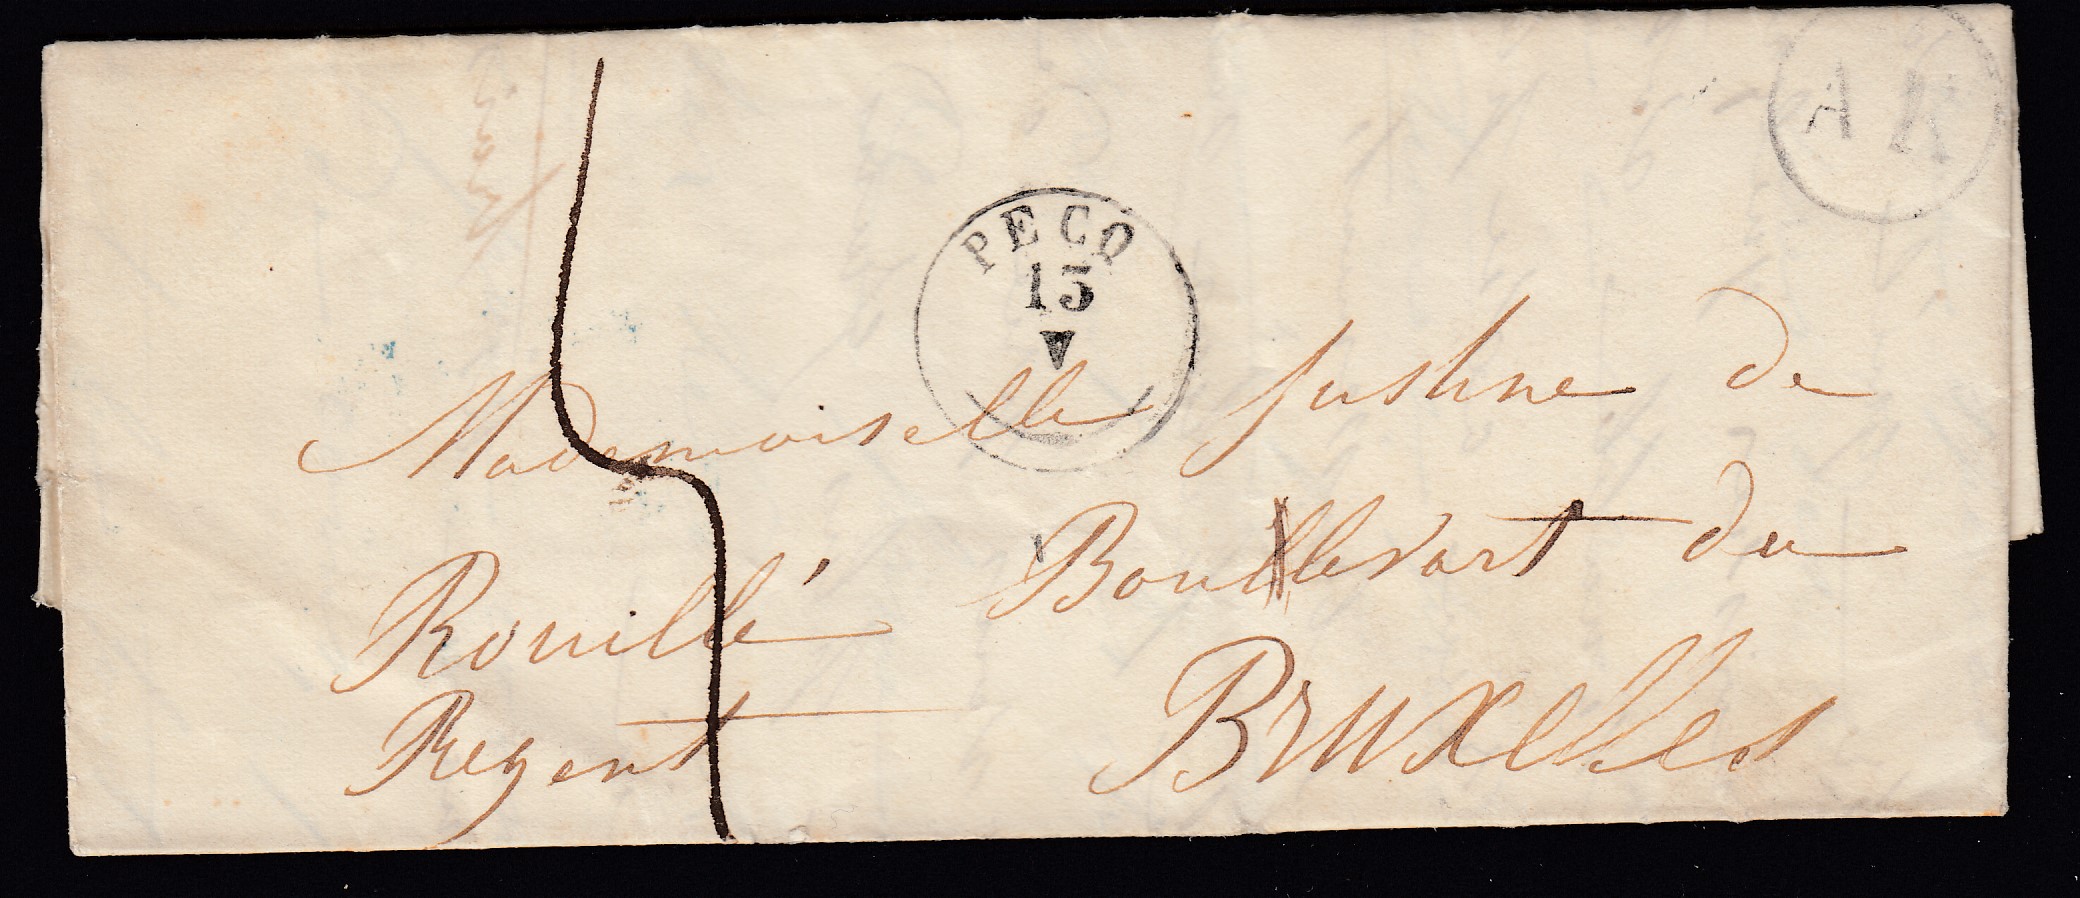 A K
PECQ
15
Mademoiselle Justine de
Rouillé Boullevart du
Regent Bruxelles